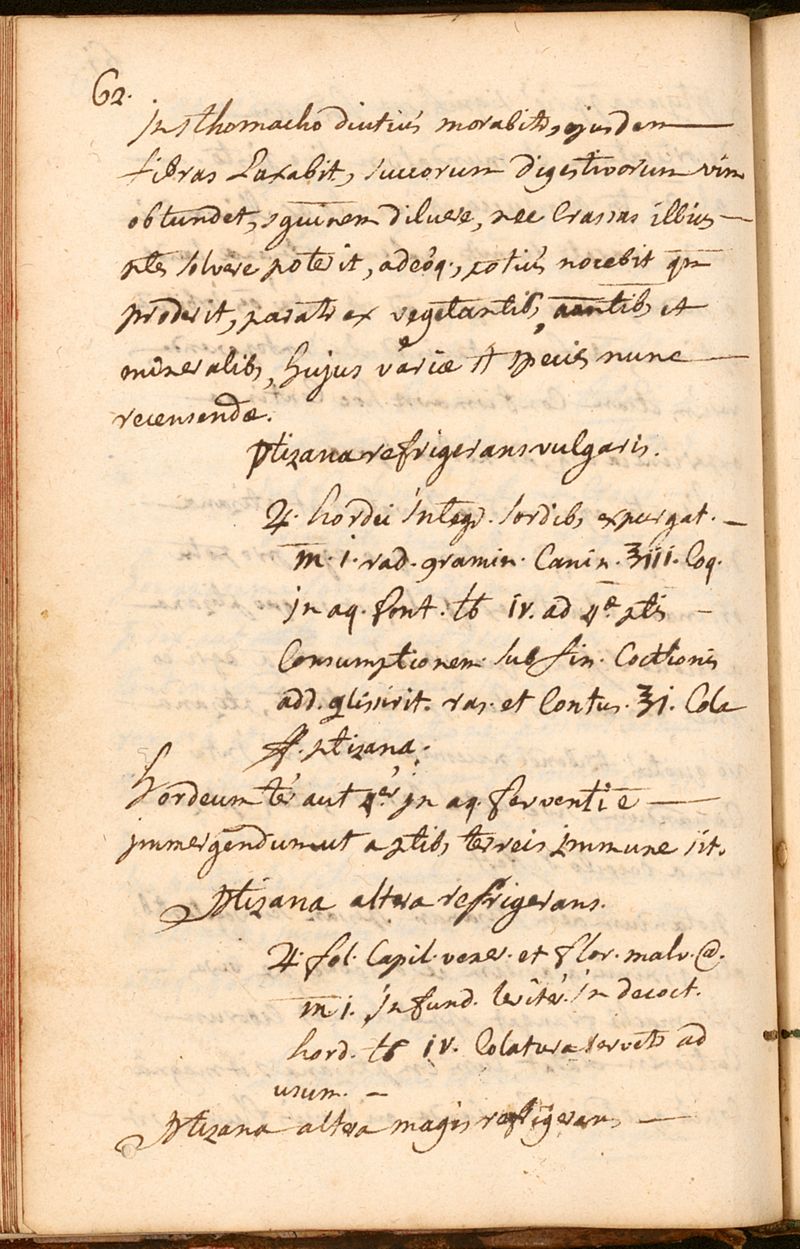 62.
in sthomacho diutius morabitr, ejusdem
fibras Laxabit, succorum digestivorum vim
obtundet, sguinem diluere, nec Crassas illius
ptes solvere poterit, adeoq., potius nocebit qm
proderit, paratr ex vegetantib, aantib, et
mineralib, hujus variæ st species nunc
recensendæ.
Ptizana refrigerans vulgaris.
♃. hordei integr. sordib, expurgat.
m. i. rad. gramin. Canin. ʒiii. Coq.
in aq. font. ℔ iv. ad 4æ ptis
Consumptionem sub fin. Cocthonis
add. glissirit. ras. et Contus. ʒi. Cola
ff. ptizana.
Hordeum ter aut 4er in aq. ferventi ē
immergendum ut a ptib, terreis immune sit.
Ptizana altera refrigerans.
♃. fol. Capil. vener. et flor. malv. @.
m i. infund. leviter. in decoct.
hord. ℔ iv. Colatura servetr ad
usum.
Ptizana altera magis refrigerans